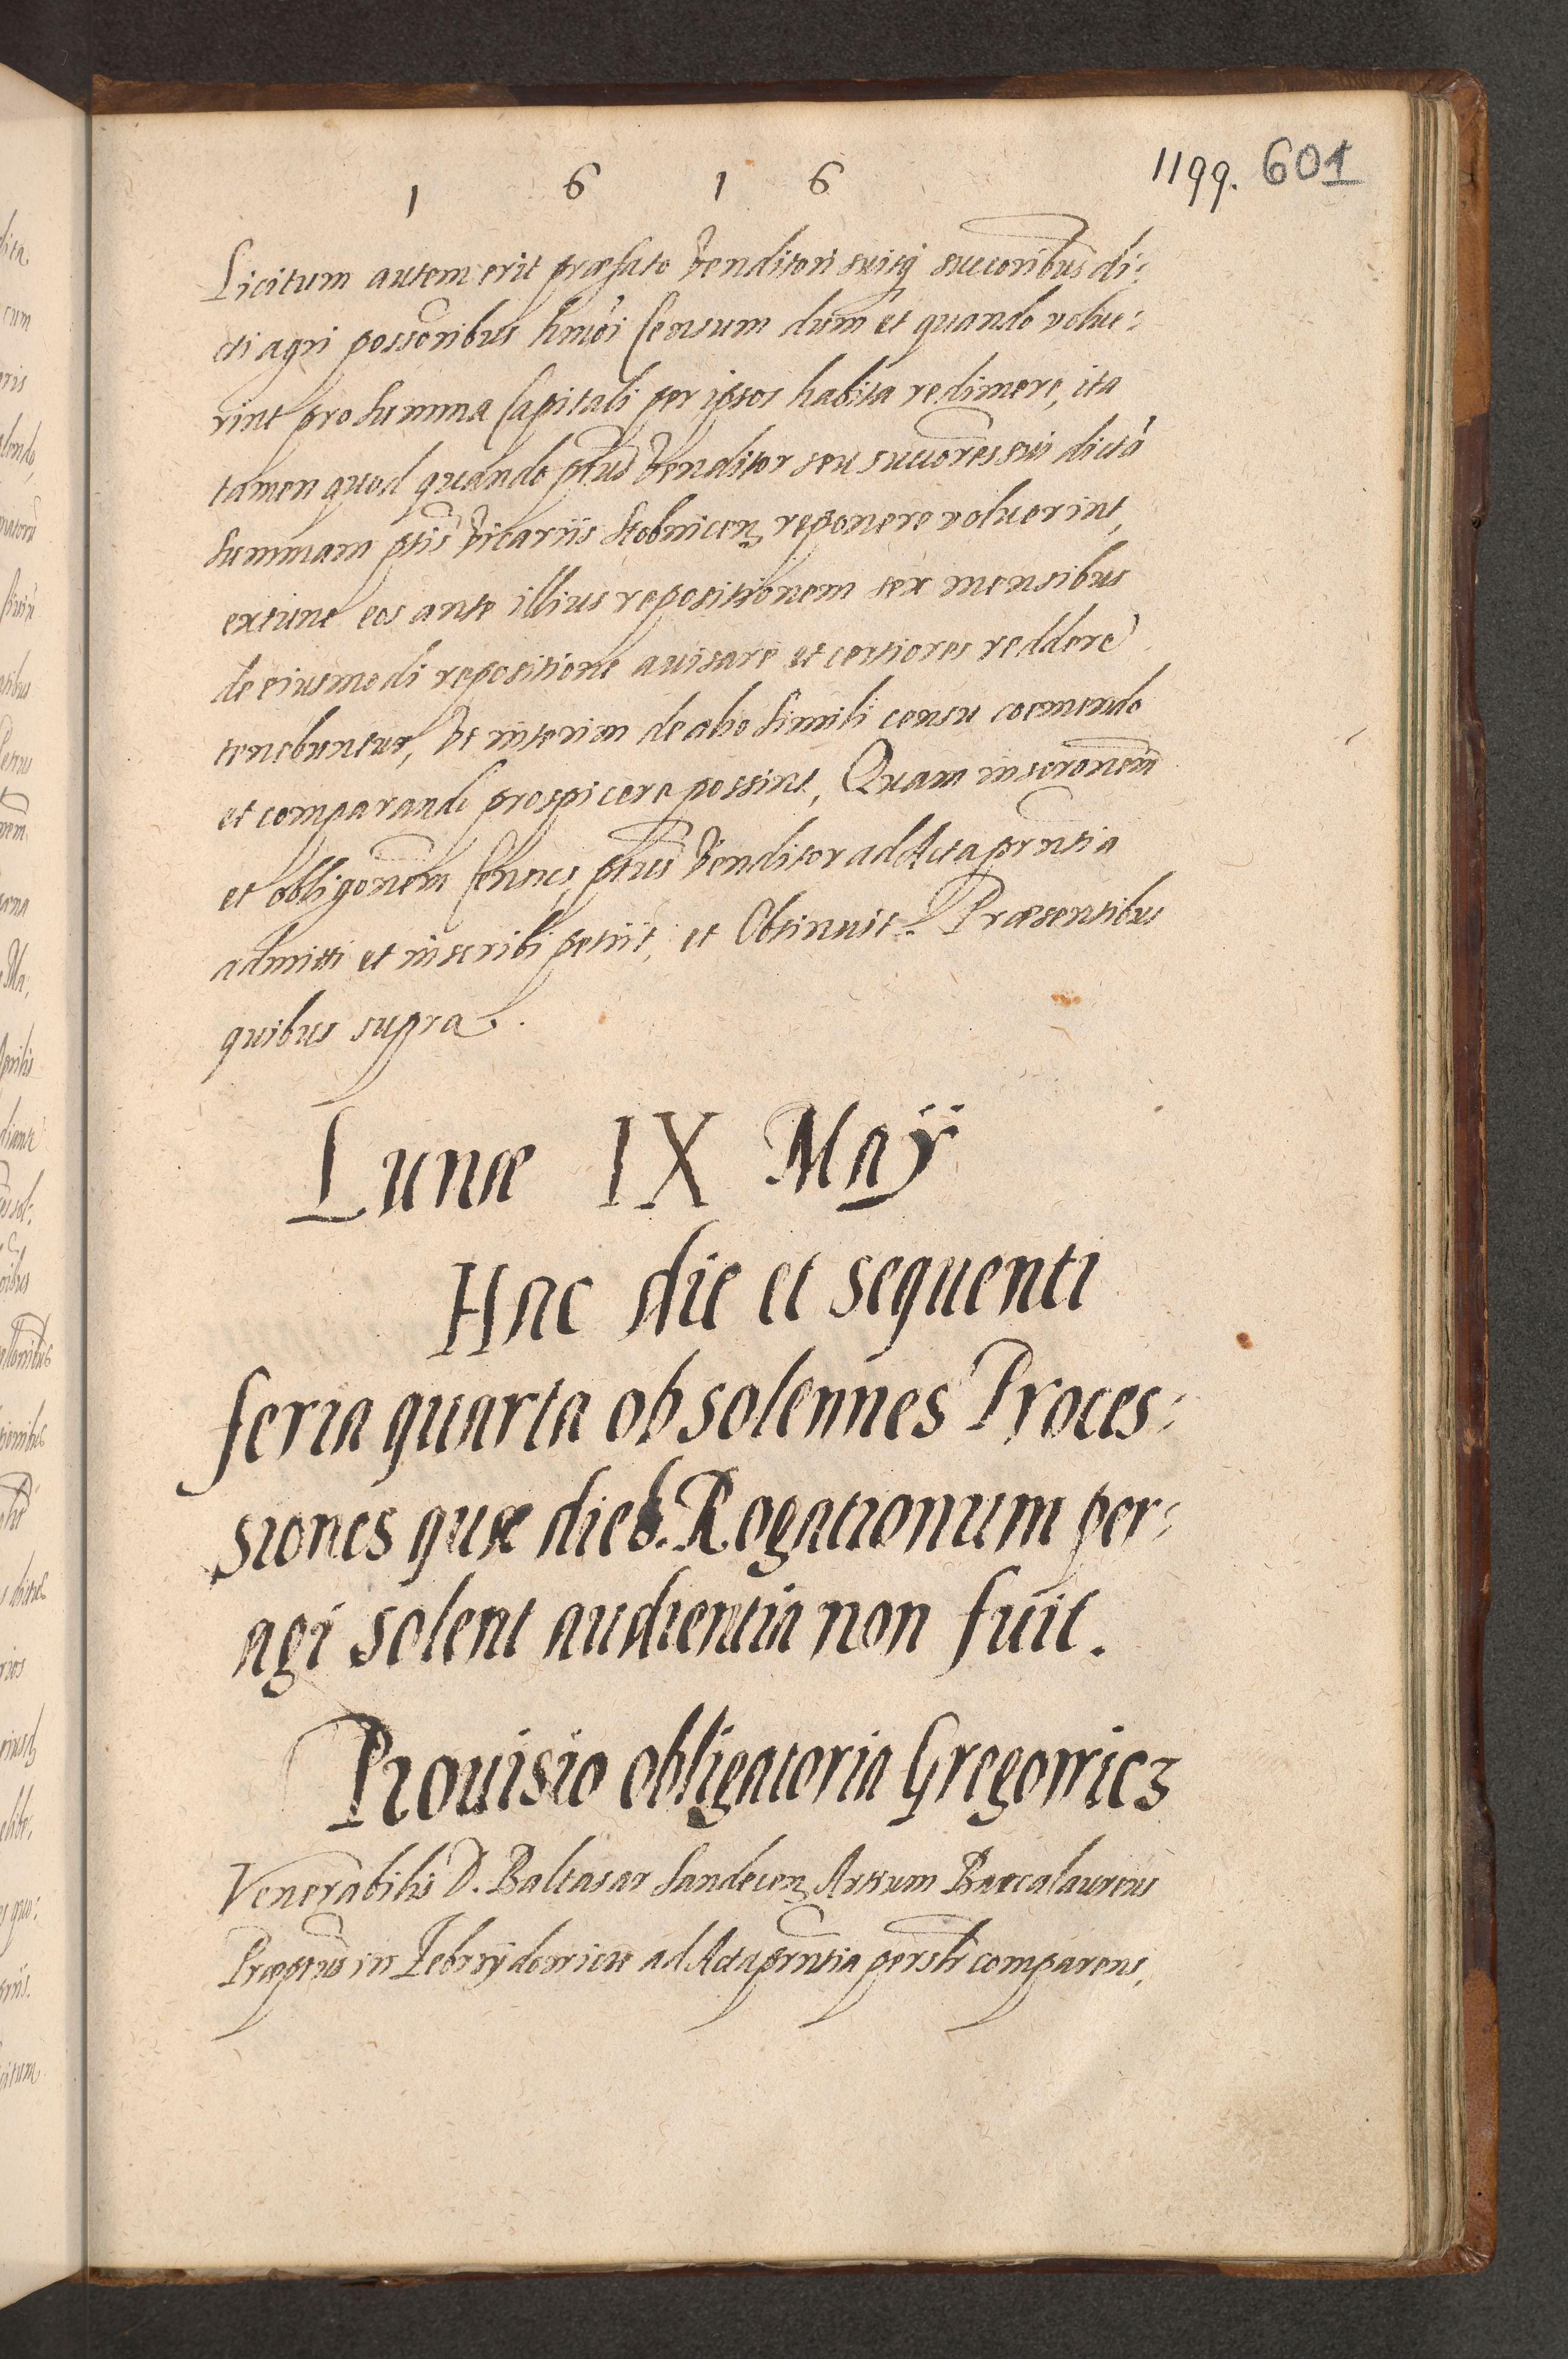 1 6 1 6
1199. 601
Licitum autem erit præfato Venditori suisq succoribus di:
cti agri possoribus hmoi Censum dum et quando volue:
rint pro summa Capitali per ipsos habita redimere, ita
tamen quod quando ptus Venditor seu successores sui dictã
summam ptis Vicariis Stobnicen reponere voluerint,
extunc eos ante illius repositionem sex mensibus
de eiusmodi repositione auisare et certiores reddere
tenebuntur, Vt interim de alio simili censu coemendo
et comparando prospicere possint, Quam inscronem
et obligonem Census ptus Venditor ad Acta prntia
admitti et inscribi petiit, et Obtinuit. Præsentibus
quibus supra.
Lunæ IX Maÿ
Hac die et sequenti
feria quarta ob solennes Proces:
siones quæ dieb. Rogationum per:
agi solent audientia non fuit.
Prouisio obligatoria Gregowicz
Venerabilis D. Baltasar Sandecen Artium Baccalaureus
Præptus in Zebrzydowice ad Acta prntia persltr comparens,